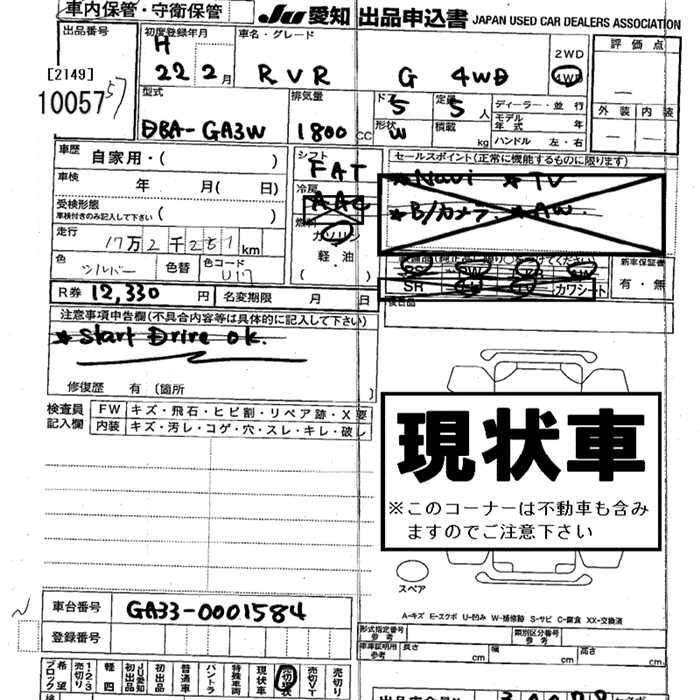 車内保管・守衛保管
JU 愛知 出品申込書 JAPAN USED CAR DEALERS ASSOCIATION
出品番号
[2149]
10057
57
初度登録年月
H
22年2月
車名・グレード
RVR G 4WD
2WD
4WD
評価点
外装 内装
型式
DBA-GA3W
排気量
1800CC
ドア
5
定員
5人
形状
W
積載
kg
ディーラー・並行
モデル年式 年
ハンドル 左・右
車歴
自家用・( )
車検
年 月( 日)
受検形態
車検付きのみ記入して下さい ( )
走行
17万2千251km
色
シルバー
色替
色コード
U17
シフト
FAT
冷房
AAC
燃料
ガソリン
軽・油
( )
セールスポイント(正常に機能するものに限ります)
★Navi ★TV
★B/カメラ ★AW
SR TV カワシート
新車保証書
有・無
R券 12,330円
名変期限 月 日
注意事項申告欄(不具合内容等は具体的に記入して下さい)
★Start Drive ok.
修復歴 有 (箇所 )
検査員
記入欄
FW キズ・飛石・ヒビ割・リペア跡・X要
内装 キズ・汚レ・コゲ・穴・スレ・キレ・破レ
現状車
※このコーナーは不動車も含みますのでご注意下さい
スペア
A-キズ E-エクボ U-凹み W-補修跡 S-サビ C-腐食 XX-交換済
車台番号 GA33-0001584
登録番号
形式指定番号
参考
類別区分番号
参考
車庫証明用
参考
長さ cm
幅 cm
高さ cm
希望ブロック
1・2・3売切り
軽四
JU愛知初出品
初出品
普通車
バントラ
特殊車両
現状車
売切現状
売切VT
売切り